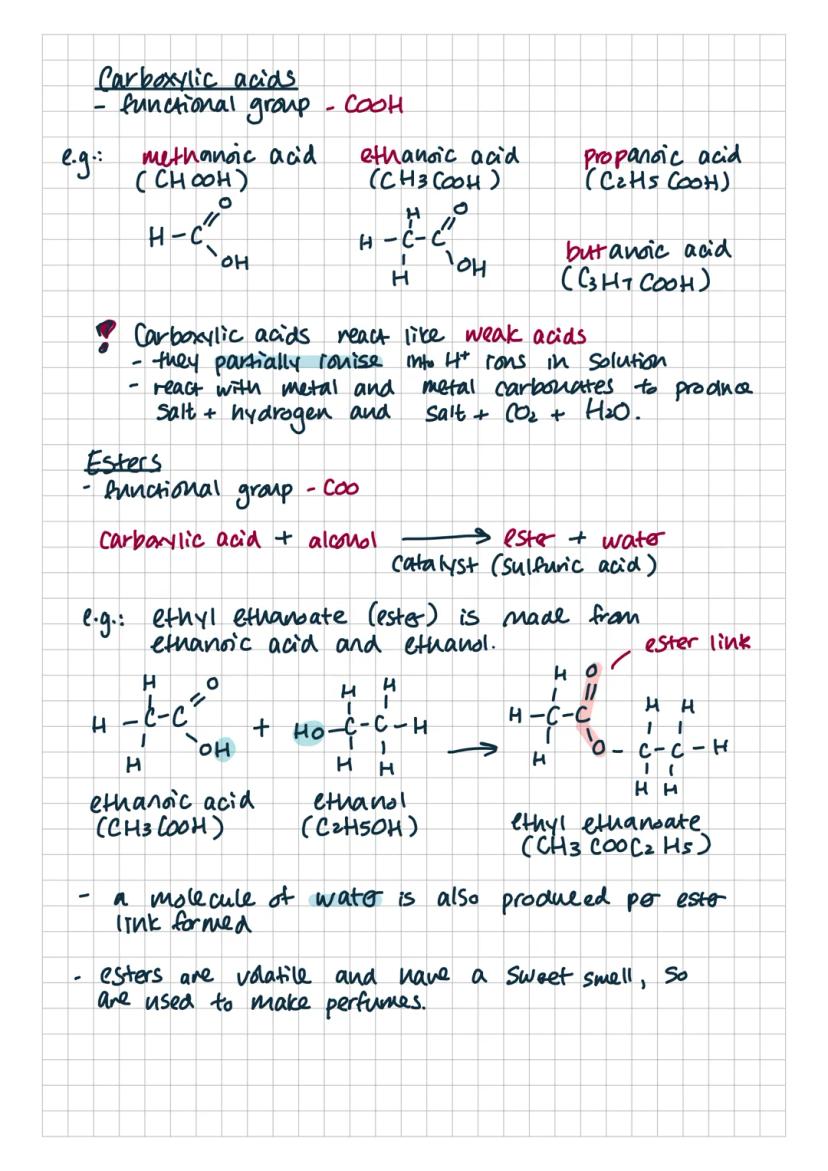 Carboxylic acids
- functional group - COOH
e.g.: methanoic acid ethanoic acid propanoic acid
(CHOOH) (CH3COOH) (C2H5COOH)
H-C O OH
H H-C-C O OH H
butanoic acid
(C3H7COOH)
! Carboxylic acids react like weak acids
- they partially ionise into H+ ions in solution
- react with metal and metal carbonates to produce
salt + hydrogen and salt + CO2 + H2O.
Esters
- functional group - COO
carboxylic acid + alcohol → ester + water
catalyst (sulfuric acid)
e.g.: ethyl ethanoate (ester) is made from
ethanoic acid and ethanol.
ester link
H O H H H O H H
H-C-C + HO-C-C-H → H-C-C
H OH H H H O-C-C-H
H H
ethanoic acid ethanol ethyl ethanoate
(CH3COOH) (C2H5OH) (CH3COOC2H5)
- a molecule of water is also produced per ester
link formed
- esters are volatile and have a sweet smell, so
are used to make perfumes.